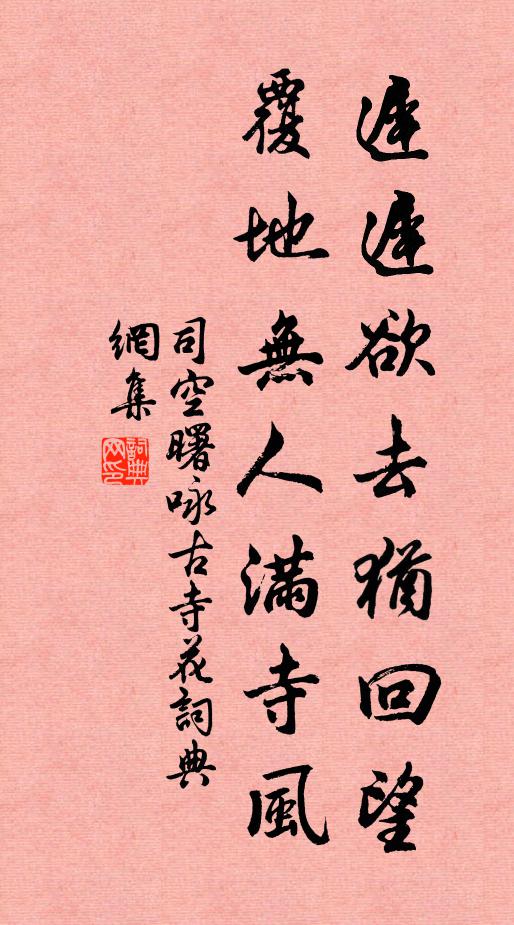 遲遲欲去猶回望
覆地無人滿寺風
司空曙咏古寺花詞典
網集
詞典
网印